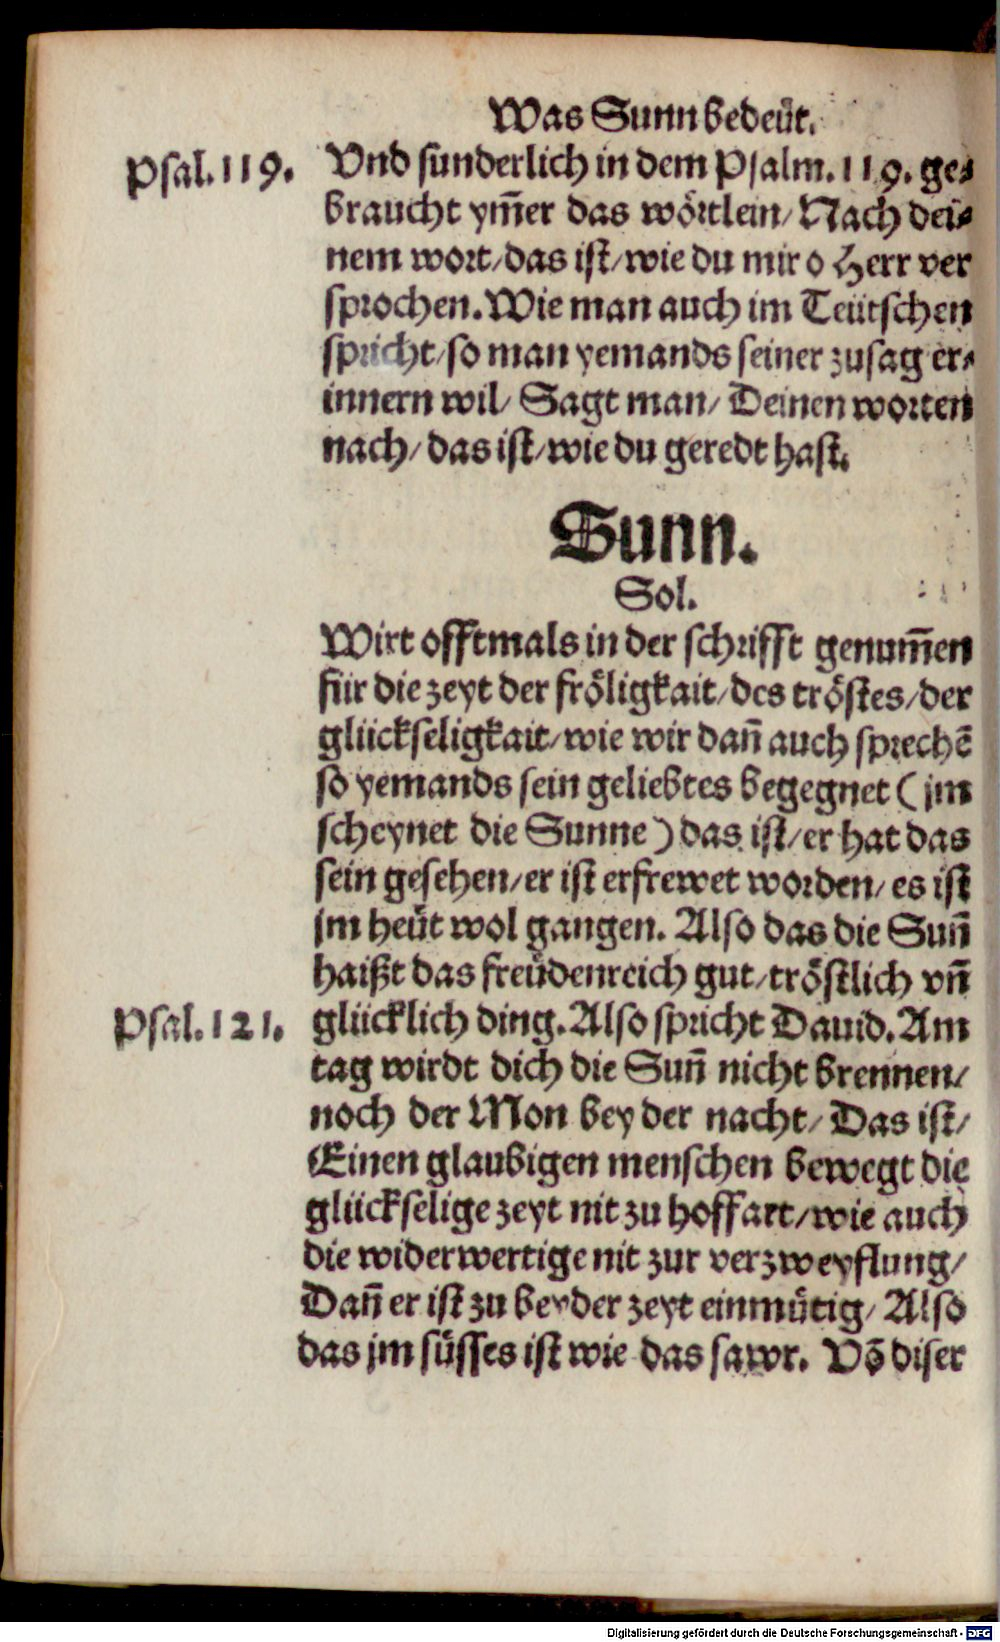 Was Sunn bedeüt.
Psal.119. Vnd sunderlich in dem Psalm.119. ge⸗
braucht ym̃er das wörtlein/ Nach dei⸗
nem wort/das ist/wie du mir o Herr ver
sprochen. Wie man auch im Teütschen
spricht/so man yemands seiner zusag er⸗
innern wil/ Sagt man/ Deinen worten
nach/ das ist/wie du geredt hast.
Sunn.
Sol.
Wirt offtmals in der schrifft genum̃en
für die zeyt der fröligkait/des tröstes/der
glückseligkait/wie wir dañ auch sprechẽ
so yemands sein geliebtes begegnet (jm
scheynet die Sunne) das ist/er hat das
sein gesehen/er ist erfrewet worden/ es ist
jm heüt wol gangen. Also das die Suñ
haißt das freüdenreich gut/tröstlich vñ
Psal.121. glücklich ding. Also spricht Dauid. Am
tag wirdt dich die Suñ nicht brennen/
noch der Mon bey der nacht/ Das ist/
Einen glaubigen menschen bewegt die
glückselige zeyt nit zu hoffart/wie auch
die widerwertige nit zur verzweyflung/
Dañ er ist zu beyder zeyt einmütig/ Also
das jm süsses ist wie das sawr. Võ diser
Digitalisierung gefördert durch die Deutsche Forschungsgemeinschaft - DFG